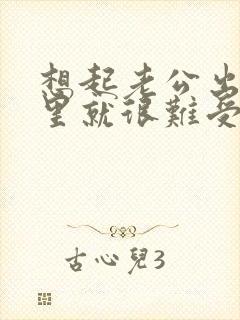 想起老公出
里就很難受
古心兒3